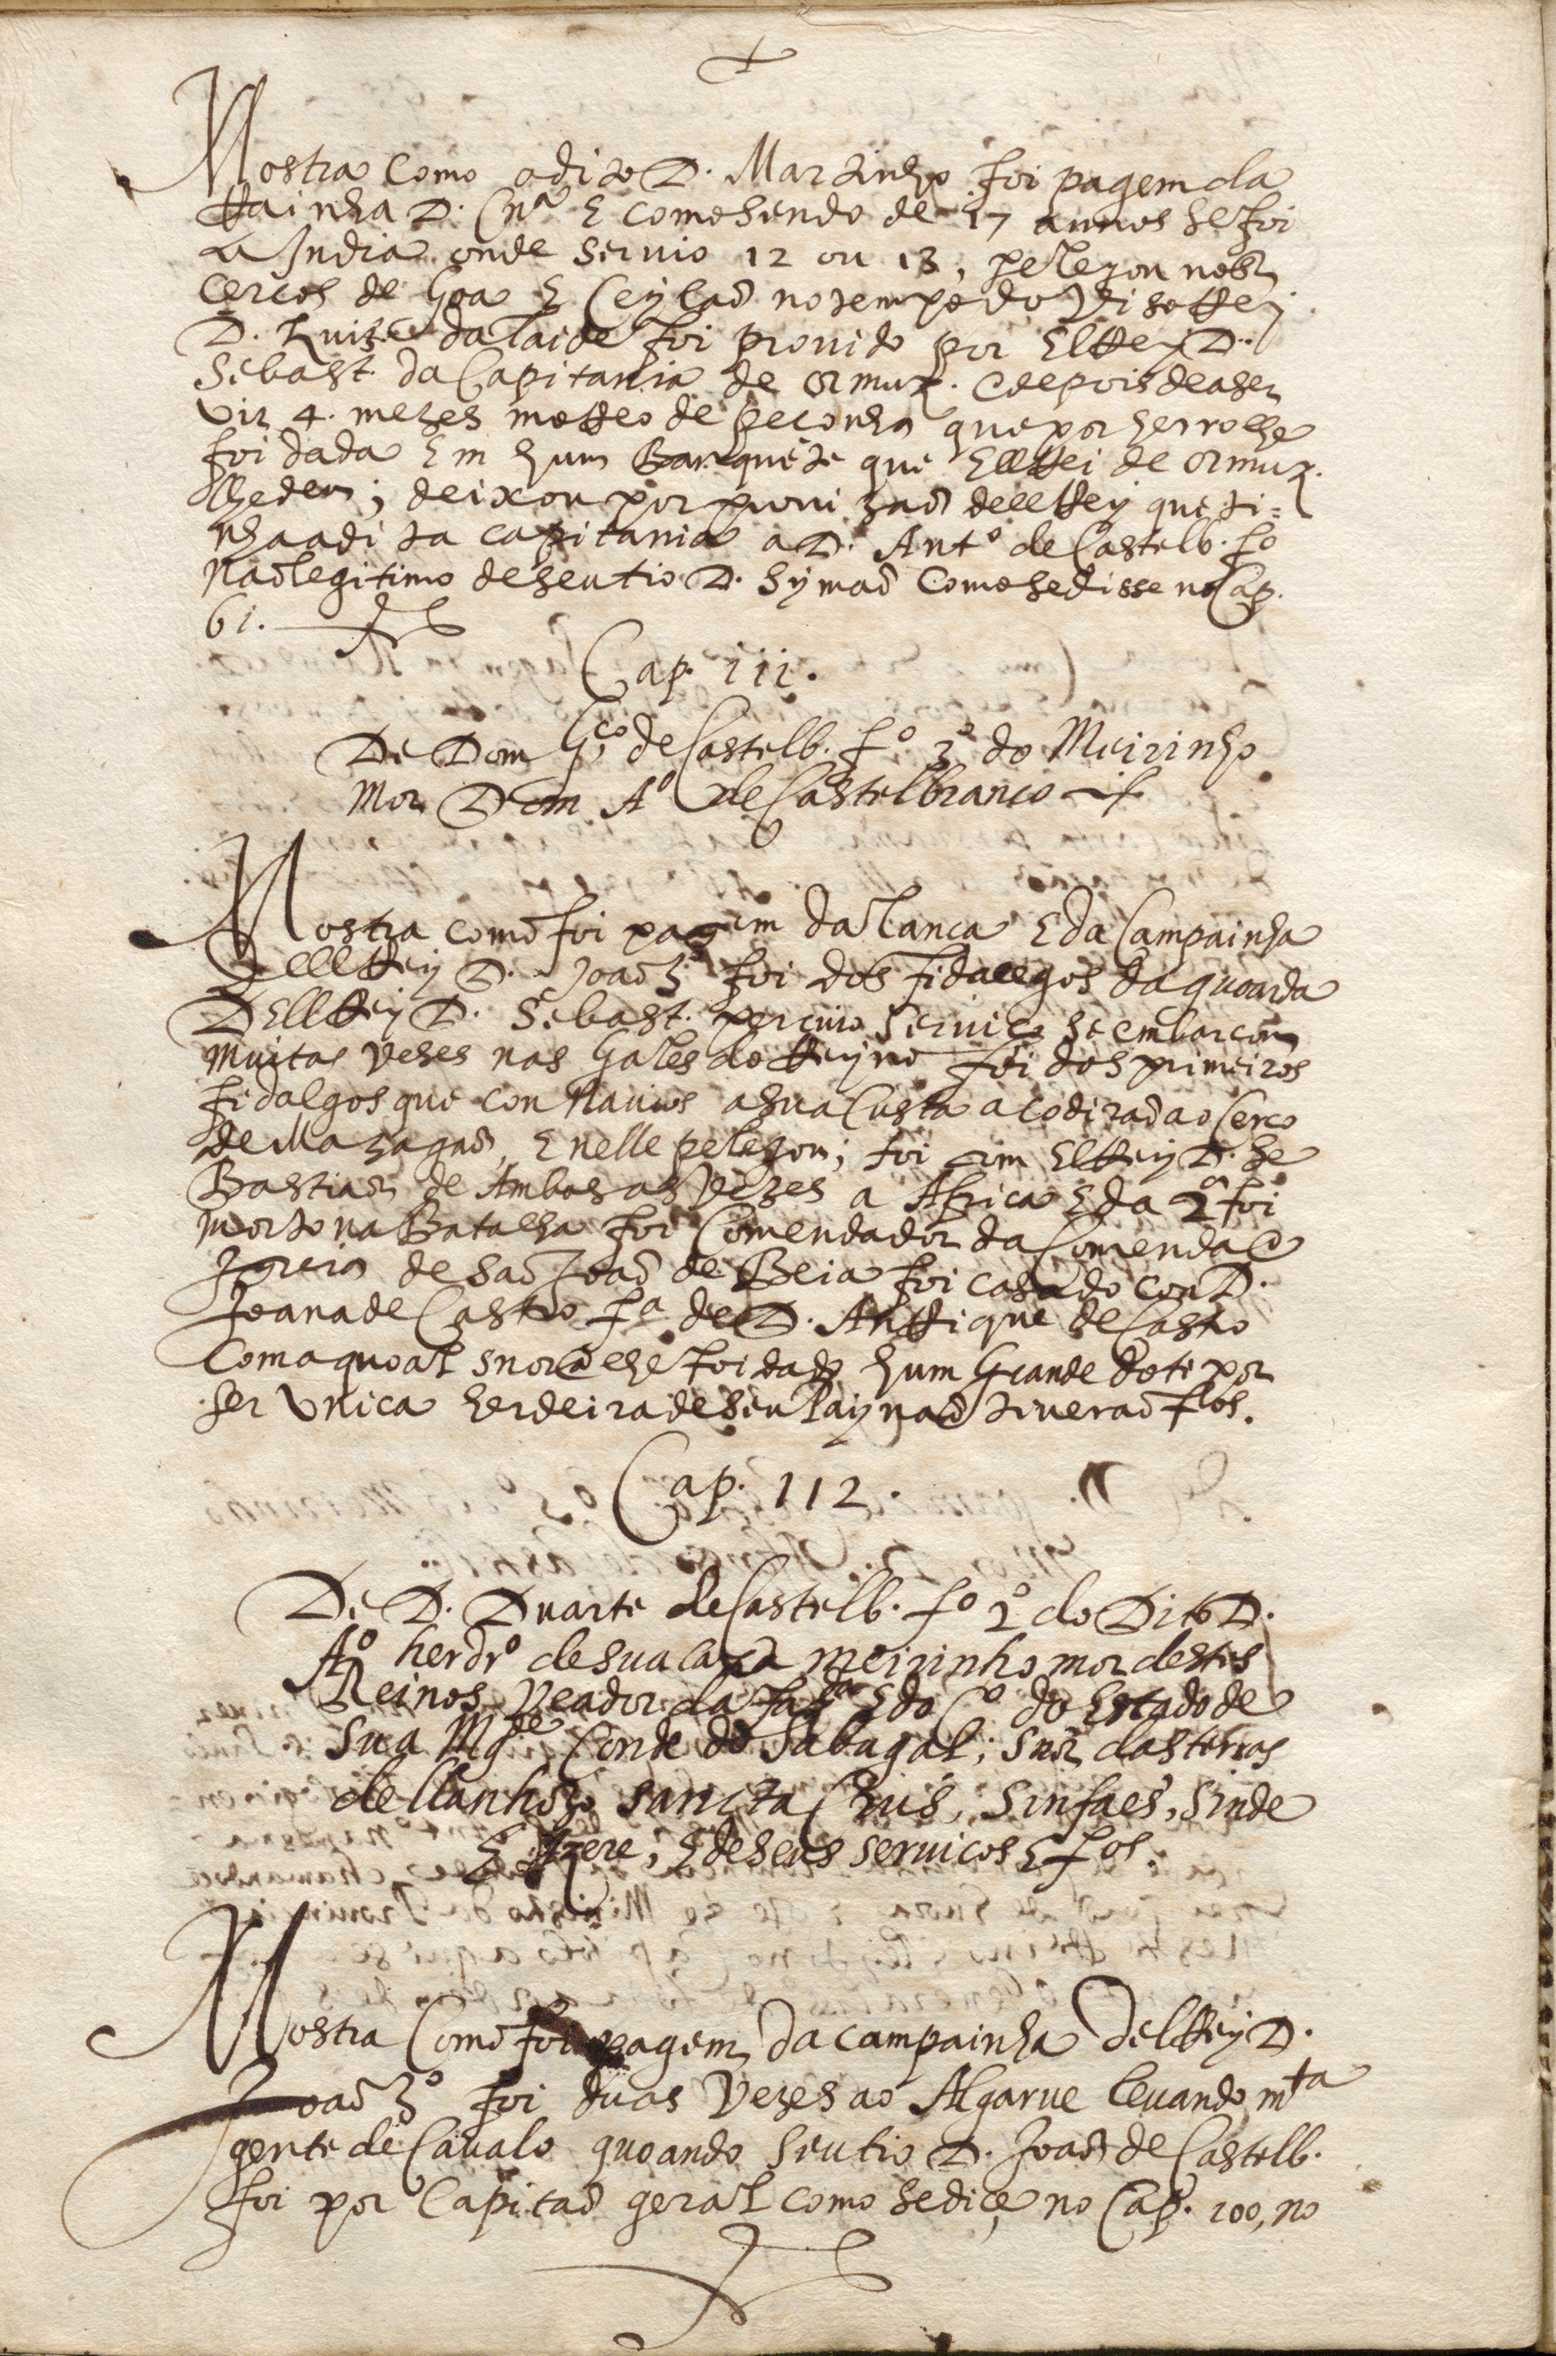 Mostra como odito D. Martinho foi pagem da
Rainha D. Cna E como sendo de 17 annos se foi
a India onde seruio 12 ou 13, peleyou nos
cercos de Goa E Ceylaõ no tempo do Visorrey
D. Luis dataide foi prouido por ElRey D.
Sebast. da Capitania de ormuz. e depois de a ser
vir 4. mezes morreo de peconha que por herro lhe
foi dada Em hum Banquete que EllRei de ormuz.
lhe deu; deixou por prouizaõ dellRey que ti=
nha adita capitania a D. Anto de Castelb. fo
naõ legitimo de seu tio D. Symaõ Como se disse no Cap.
61.
Cap. 111.
De Dom Gco de Castelb. fo 3o do Meirinho
Mor Dom Ao de Castelbranco
Mostra como foi pagem da lanca E da Campainha
DellRey D. Joaõ 3o foi dos Fidallgos da guoarda
DEllRey D. Sebast. per cuio seruico se embarcou
muitas vezes nas Gales do Reyno foi dos primeiros
fidalgos que con nauios a sua Custa acodiraõ ao Cerco
de Mazagaõ, E nelle peleyou; foi com ElRey D. Se
Bastiaõ de Ambas as Vezes a Africa E da 2a foi
morto na Batalha foi Comendador da Comenda e
Igreia de Saõ Joaõ de Beia foi casado con D.
Joana de Castro fa de D. Anrrique de Castro
Com a quoal snora lhe foi dado hum Grande dote por
ser Vnica herdeira de seu Pay naõ tiueraõ flos.
Cap. 112.
De D. Duarte de Castelb. fo 2o do Dito D.
Ao herdro de sua caza meirinho mor destes
Reinos, Veador da fazda E do Co do Estado de
Sua Mgde Conde do Sabugal; Snor das terras
de llanhozo sancta Chrus, Sinfaes, Sinde
E Azere, E de seus seruicos E fos.
Mostra Como foi pagem da campainha DelRey D.
Joaõ 3o foi duas Vezes ao Algarue leuando mta
gente de Caualo quoando seu tio D. Joaõ de Castelb.
foi por Capitaõ geral como se diçe no Cap. 100, no